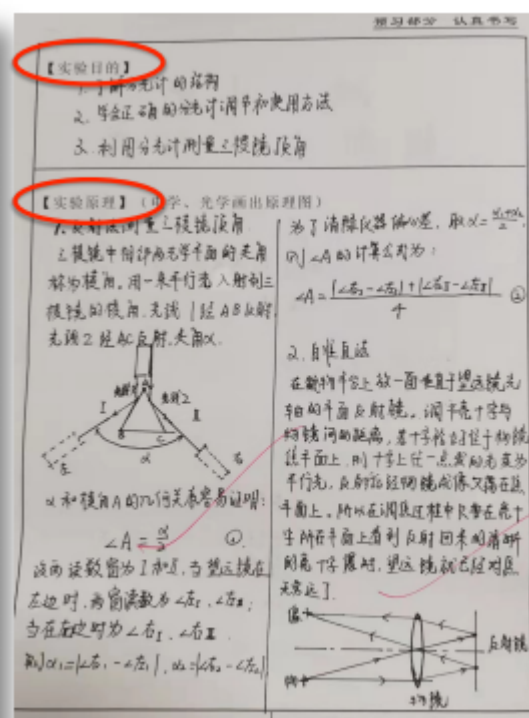 预习部分 认真书写
【实验目的】
1. 了解分光计的结构
2. 学会正确的分光计调节和使用方法
3. 利用分光计测量三棱镜顶角
【实验原理】（电学、光学画出原理图）
1. 反射法测量三棱镜顶角
三棱镜中任详两光学平面的夹角
称为棱角。用一束平行光入射到三
棱镜的棱角，光线1经AB反射
光线2经AC反射，夹角α.
光线1
光线2
A
I
II
B
C
左
α
右
α和棱角A的几何关系容易证明:
∠A = α/2 ①.
设两读数窗为I和II，当望远镜在
左边时，两窗读数为∠左I、∠左II；
当在右边时为∠右I、∠右II
则α₁=|∠右₁-∠左₁|，α₂=|∠右₂-∠左₂|
为了清除仪器偏心差，取α=(α₁+α₂)/2.
则∠A的计算公式为：
∠A = (|∠右₁-∠左₁|+|∠右II-∠左II|)/4 ②
2. 自准直法
在载物平台上放一面垂直于望远镜光
轴的平面反射镜。调节亮十字与
物镜间的距离，若十字恰好位于物镜
焦平面上，则十字上任一点发的光变为
平行光，反射后经物镜成像又落在焦
平面上。所以在调焦过程中只要在亮十
字所在平面上看到反射回来的清晰
的亮十字像时，望远镜就已经对焦
无穷远了.
像
物
物镜
反射镜